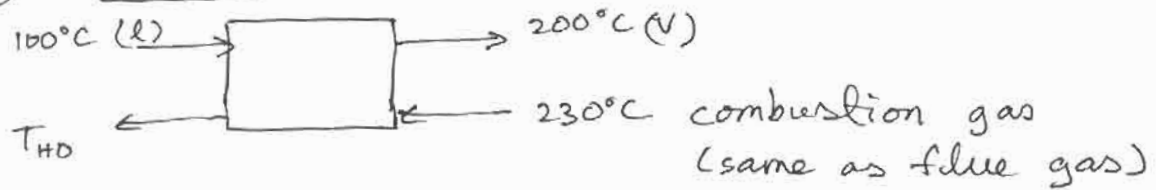 100°C (l)
200°C (V)
T_HO
230°C combustion gas
(same as flue gas)